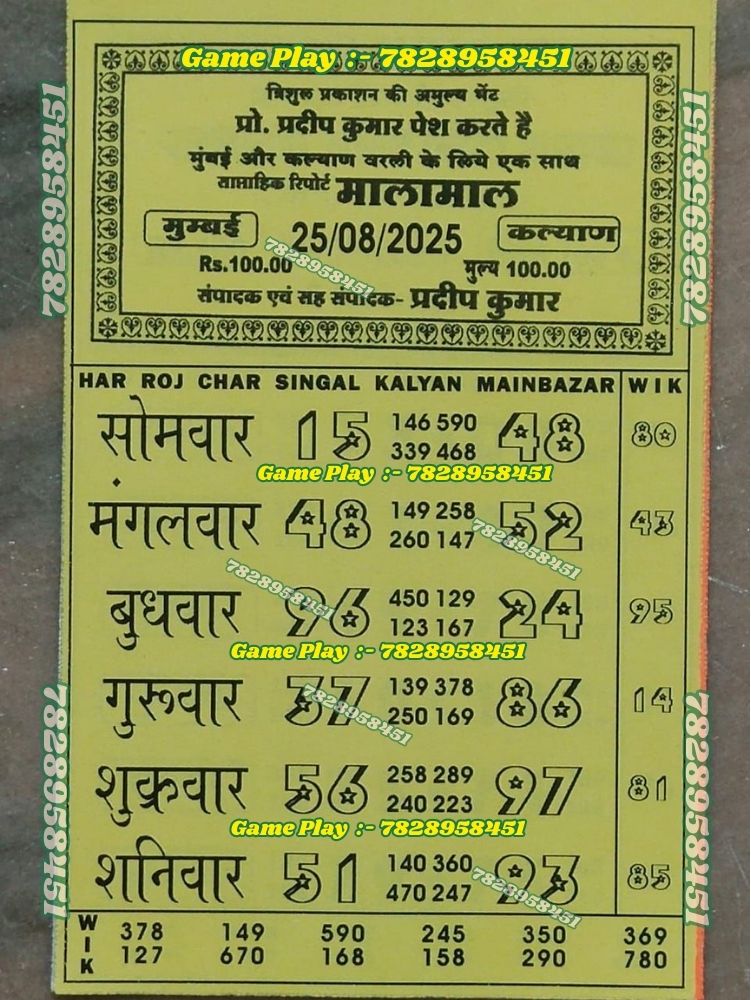 Game Play :- 7828958451
त्रिशुल प्रकाशन की अमुल्य भेंट
प्रो. प्रदीप कुमार पेश करते है
मुंबई और कल्याण वरली के लिये एक साथ
साप्ताहिक रिपोर्ट मालामाल
मुम्बई 25/08/2025 कल्याण
Rs.100.00 मुल्य 100.00
7828958451
संपादक एवं सह संपादक- प्रदीप कुमार
7828958451
7828958451
HAR ROJ CHAR SINGAL KALYAN MAINBAZAR WIK
सोमवार 15 146 590 48 80
339 468
Game Play :- 7828958451
मंगलवार 48 149 258 52 43
260 147
7828958451
7828958451
बुधवार 96 450 129 24 95
123 167
Game Play :- 7828958451
गुरूवार 37 139 378 86 14
250 169
7828958451
शुक्रवार 56 258 289 97 81
240 223
Game Play :- 7828958451
शनिवार 51 140 360 93 85
470 247
7828958451
7828958451
7828958451
WIK 378 149 590 245 350 369
127 670 168 158 290 780